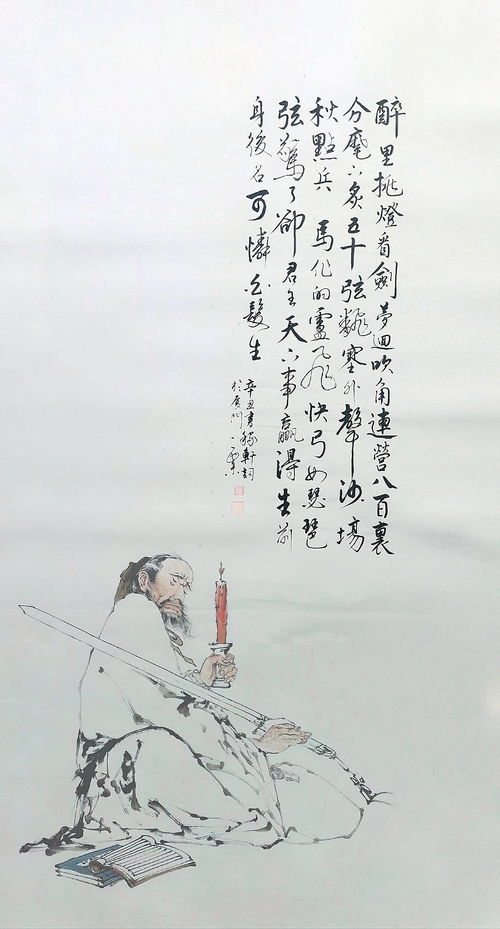 醉里挑燈看劍夢迴吹角連營八百裏
分麾下炙五十弦翻塞外聲沙場
秋點兵 馬作的盧飛快弓如
弦驚了卻君王天下事贏得生前
身後名可憐白髮生
辛丑書稼軒詞
於